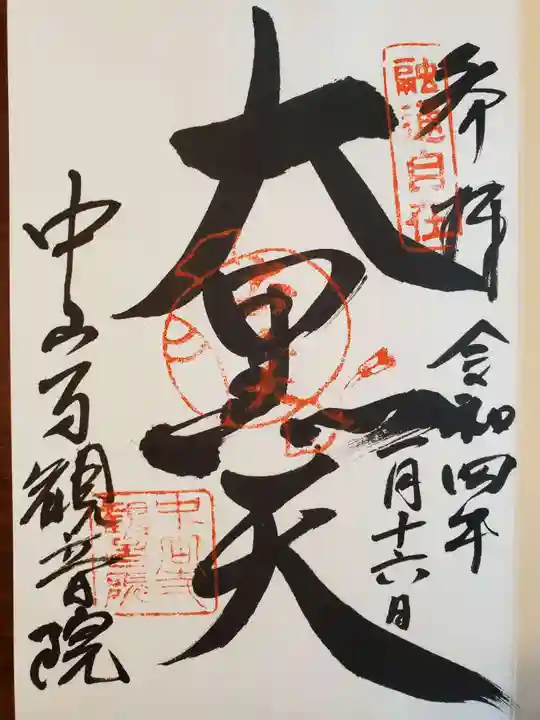 奉拝
令和四年
一月十六日
融通自在
大黒天
中山寺観音院
中山寺
観音院